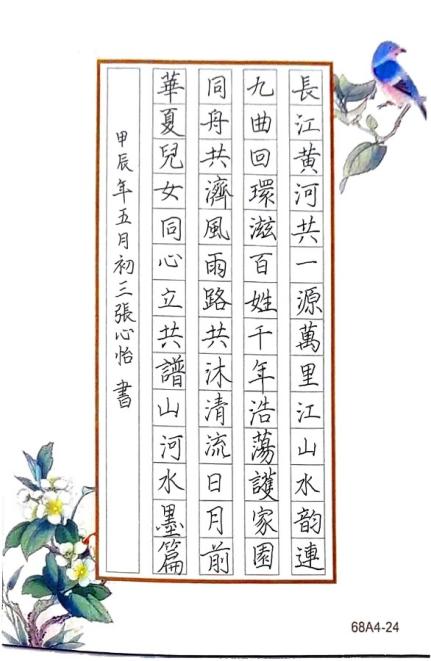 長江黄河共一源萬里江山水韵連
九曲回環滋百姓千年浩蕩護家園
同舟共濟風雨路共沐清流日月前
華夏兒女同心立共譜山河水墨篇
甲辰年五月初三張心怡 書
68A4-24